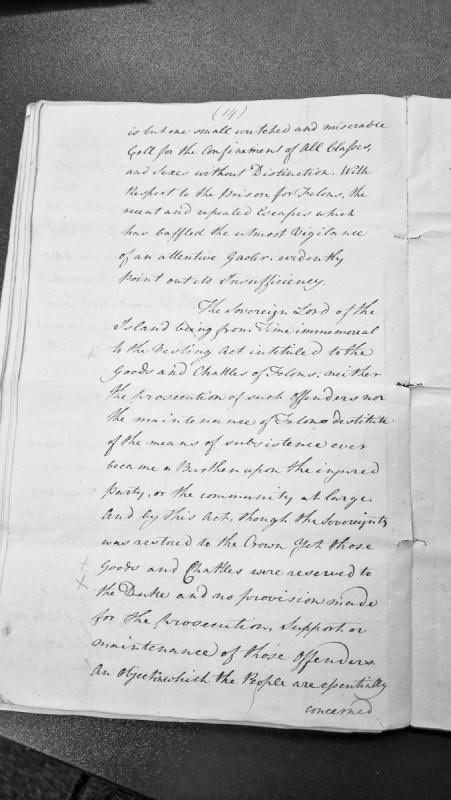 (14)
is but one small wretched and miserable
Goll for the Confinement of All Classes,
and Sexes without Distinction. With
Respect to the Poison for Felons, the
recent and repeated Escapes which
has baffled the utmost Vigilance
of an attentive Gaoler. evidently
point out its Insufficiency.
The Sovereign Lord of the
Island being from Time immemorial
to the Vesting Act intituled to the
Goods and Chattles of Felons; neither
the prosecution of such Offenders nor
the maintenance of Felons destitute
of the means of subsistence ever
became a Burthen upon the injured
party, or the community at large.
And by this Act, though the Sovereignty
was restored to the Crown Yet those
Goods and Chatles were reserved to
the Duke and no provision made
for the prosecution, Support or
maintenance of those Offenders.
An Object in which the People are essentially
concerned